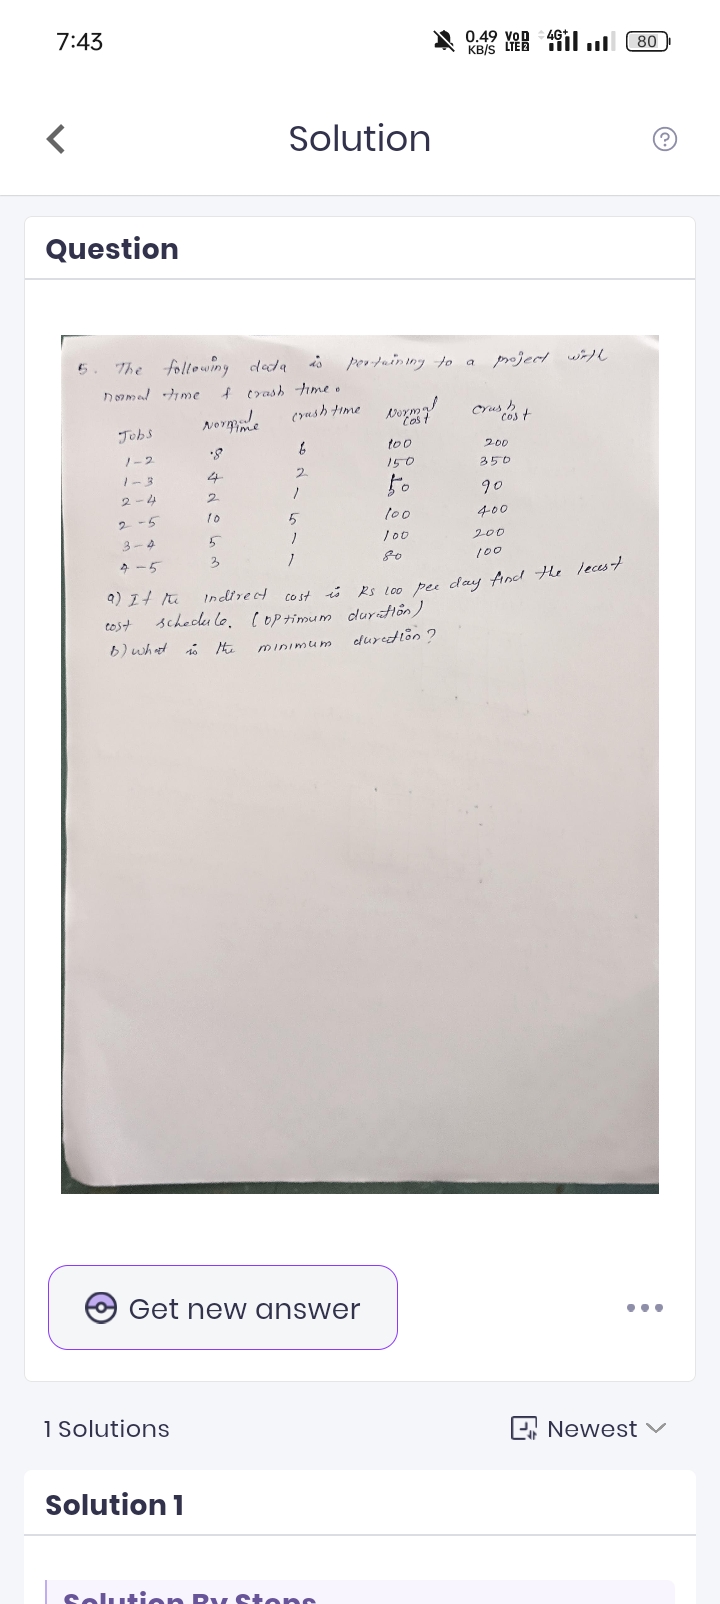 7:43
0.49 KB/S
Vo LTE 2
4G+
80
Solution
Question
5. The following data is pertaining to a project with
normal time & crash time.
Jobs Normal time crash time Normal cost Crash cost
1-2 8 6 100 200
1-3 4 2 150 350
2-4 2 1 50 90
2-5 10 5 100 400
3-4 5 1 100 200
4-5 3 1 80 100
a) If the indirect cost is Rs 100 per day find the least
cost schedule. (optimum duration)
b) what is the minimum duration?
Get new answer
1 Solutions
Newest
Solution 1
Solution By Steps